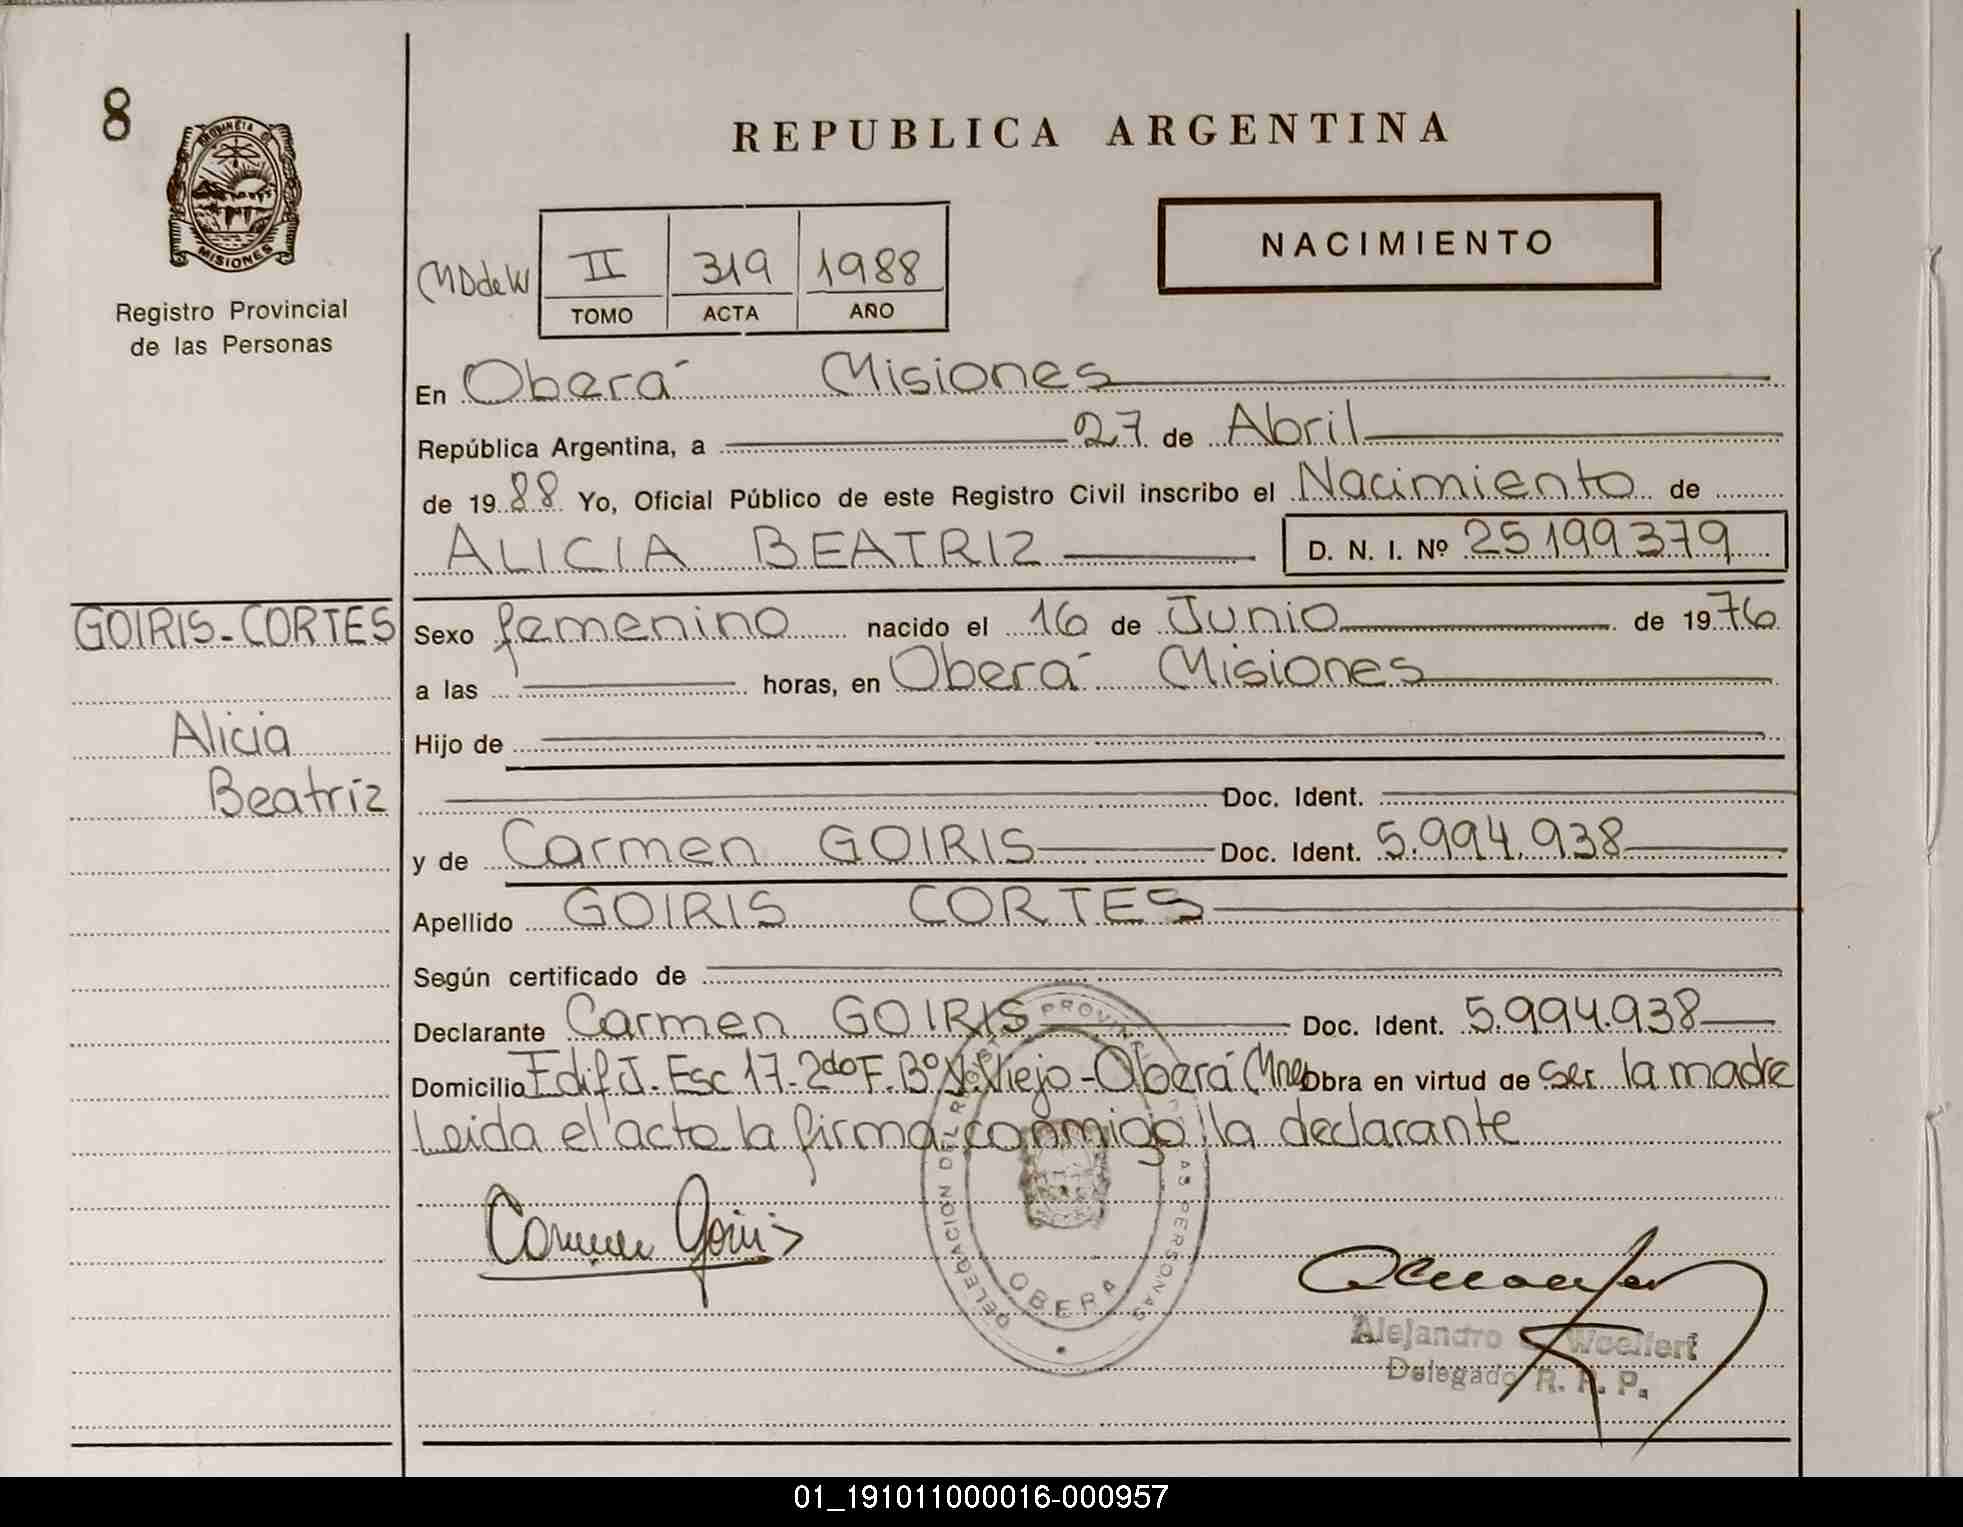 8
PROVINCIA DE
MISIONES
Registro Provincial
de las Personas
REPUBLICA ARGENTINA
NACIMIENTO
MDdeW
II 319 1988
TOMO ACTA AÑO
En Oberá Misiones
República Argentina, a 27 de Abril
de 1988 Yo, Oficial Público de este Registro Civil inscribo el Nacimiento de
ALICIA BEATRIZ D. N. I. Nº 25199379
GOIRIS-CORTES
Alicia
Beatriz
Sexo femenino nacido el 16 de Junio de 1976
a las horas, en Oberá Misiones
Hijo de
Doc. Ident.
y de Carmen GOIRIS Doc. Ident. 5.994.938
Apellido GOIRIS CORTES
Según certificado de
Declarante Carmen GOIRIS Doc. Ident. 5.994.938
Domicilio Edif J. Esc 17-2do F. Bº V. Viejo-Oberá Mnes Obra en virtud de ser la madre
Leida el acto la firma conmigo la declarante
Carmen Goiris
DELEGACION DEL REGISTRO PROVINCIAL DE LAS PERSONAS
OBERA
Alejandro Woelfert
Delegado R. P. P.
01_191011000016-000957